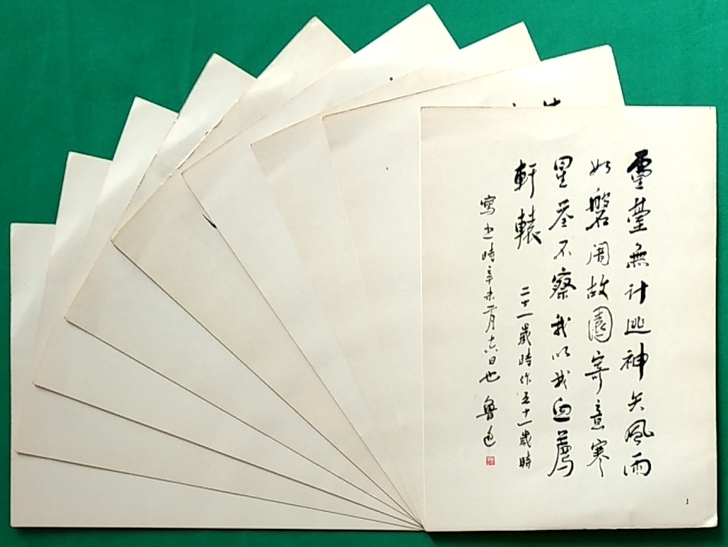 靈臺無計逃神矢風雨
如磐闇故園寄意寒
星荃不察我以我血薦
軒轅
二十一歲時作五十一歲時
寫之時辛未二月十六日也 魯迅
1